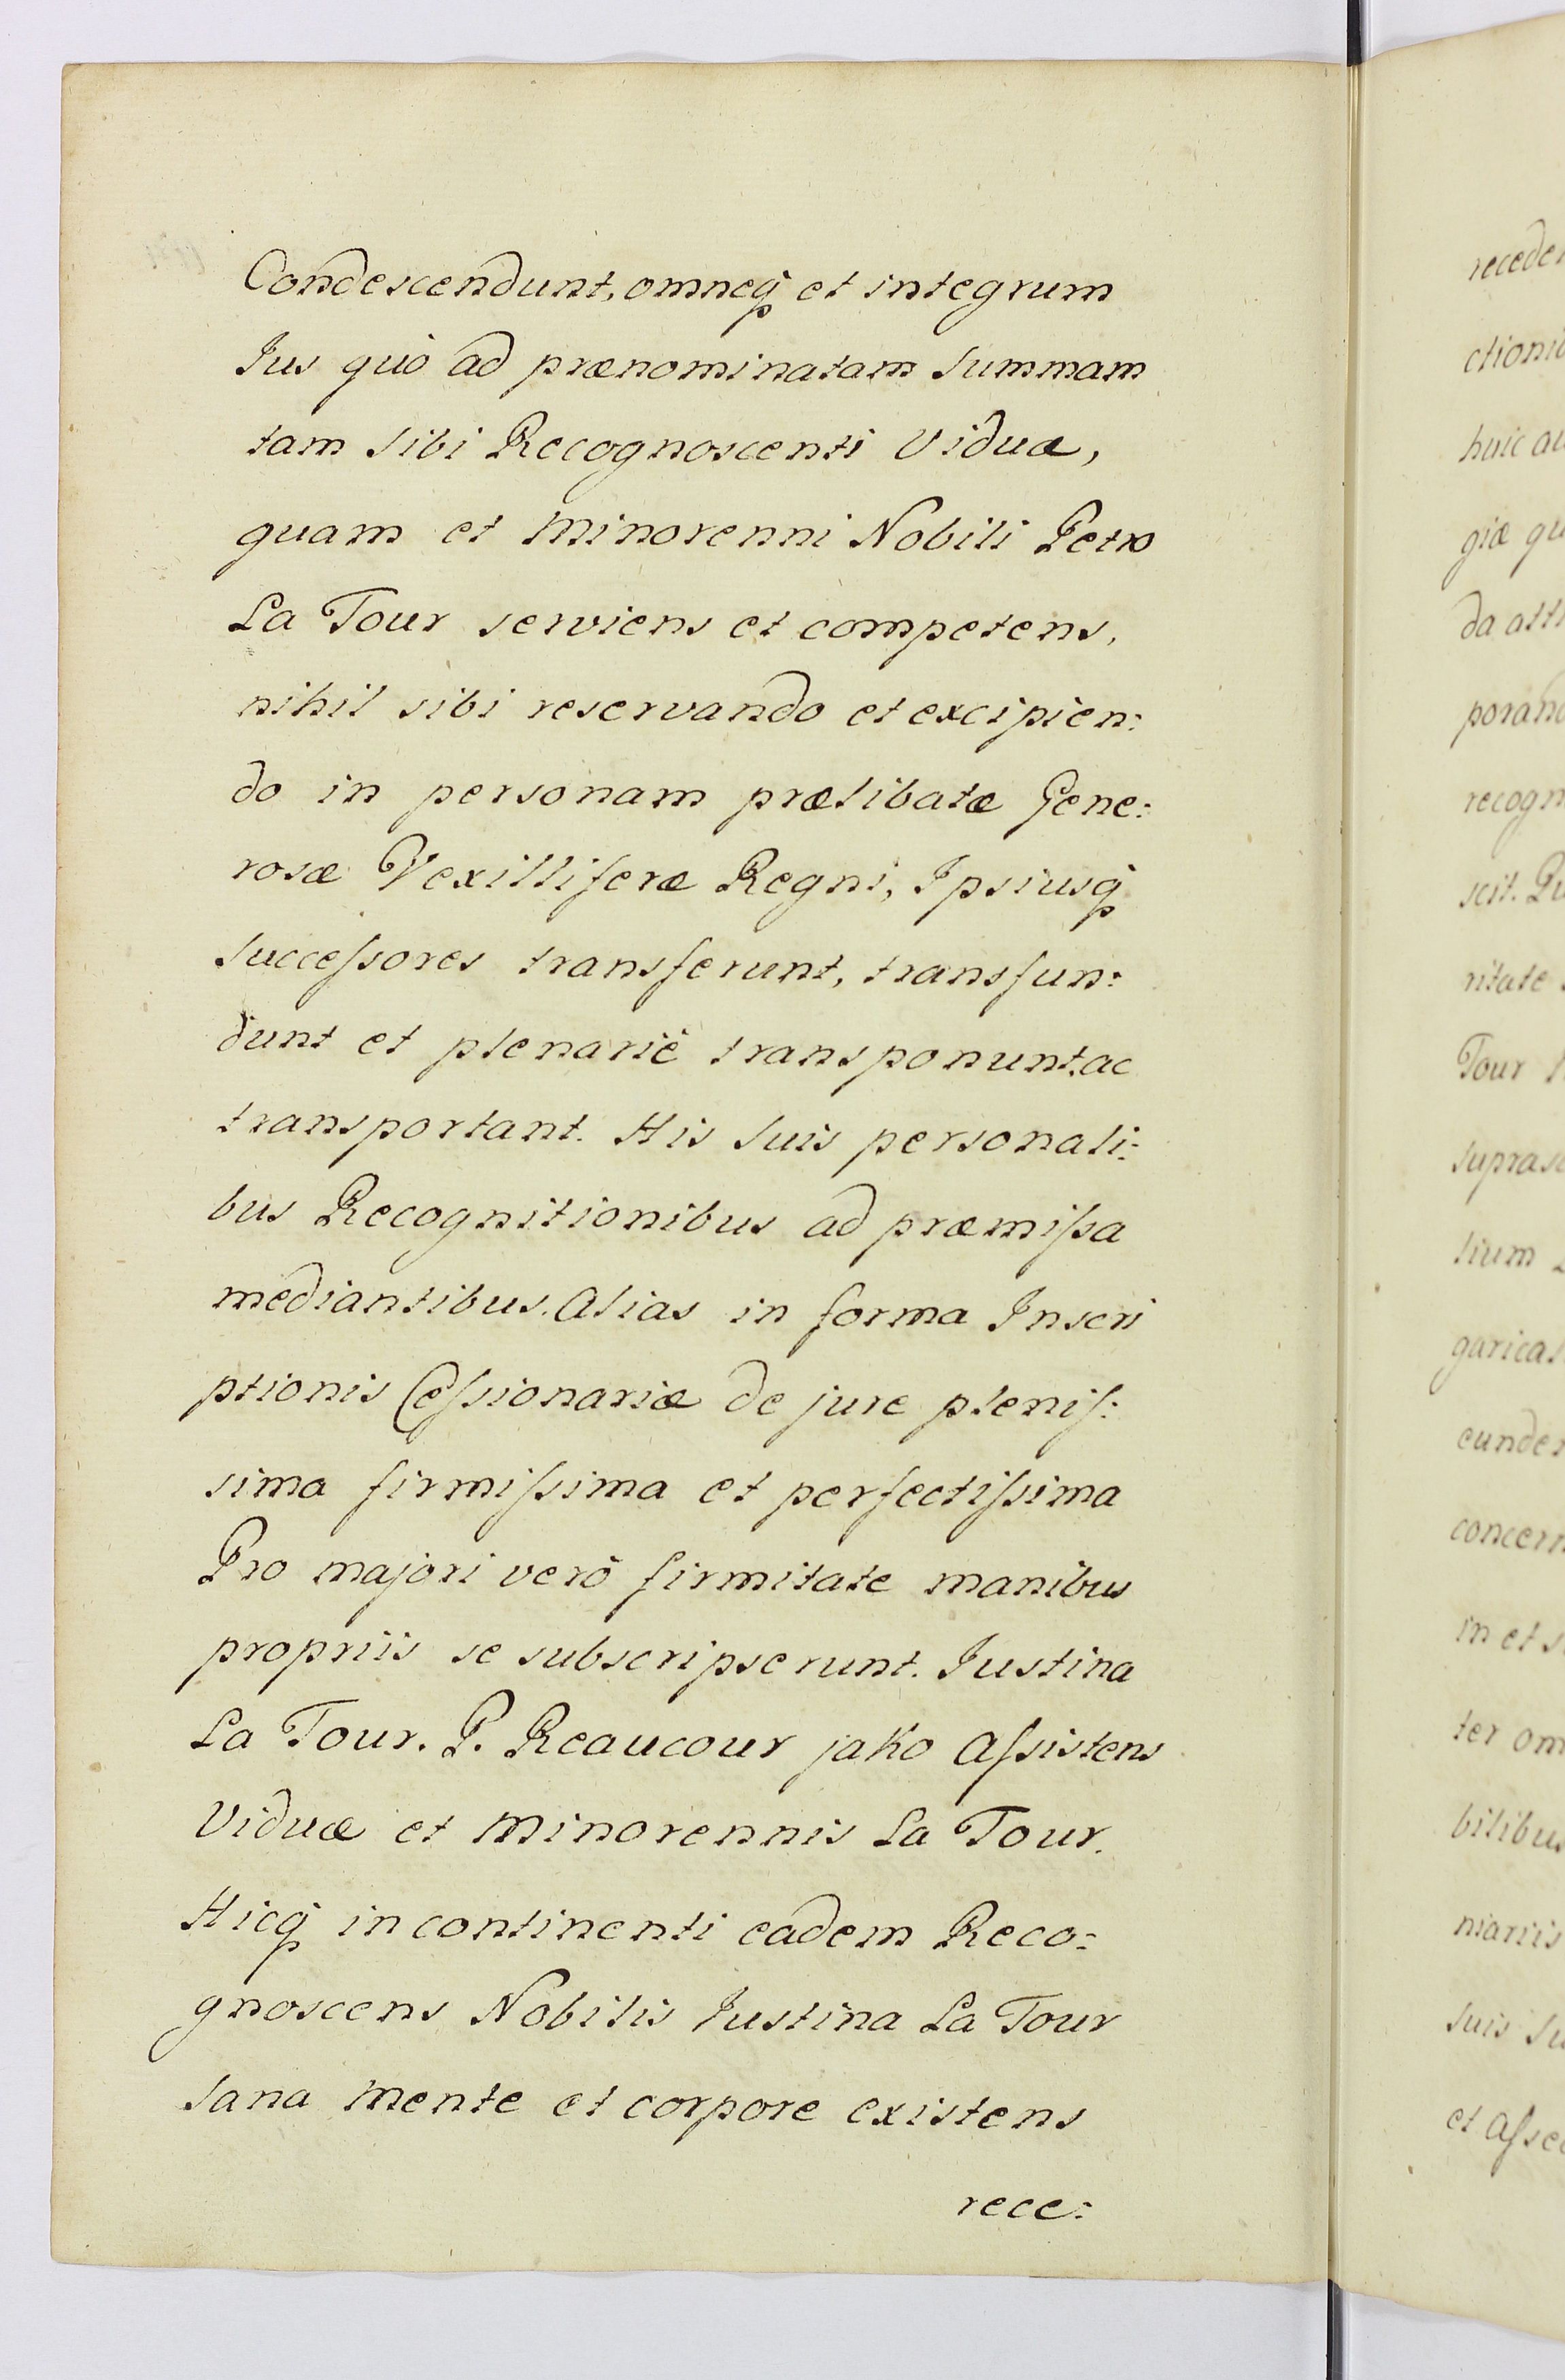 Condescendunt, omneq́ et integrum
Jus quò ad prænominatam Summam
tam Sibi Recognoscenti Viduæ,
quam et Minorenni Nobili Petro
La Tour serviens et competens,
nihil sibi reservando et excipien:
do in personam prælibatæ Gene:
rosæ Vexilliferæ Regni, Ipsiusq́
Succeſsores transferunt, transfun:
dunt et plenariè transponunt, ac
transportant. His Suis personali:
bus Recognitionibus ad præmiſsa
mediantibus. Alias in forma Inscri
ptionis Ceſsionariæ de jure pleniſ:
sima firmiſsima et perfectiſsima
Pro majori verò firmitate manibus
propriis se subscripserunt. Justina
La Tour. P. Reaucour jako Aſsistens
Viduæ et Minorennis La Tour.
Hicq́ incontinenti eadem Reco:
gnoscens Nobilis Justina La Tour
Sana Mente et corpore existens
rece:
receder
ctionib
huic au
giæ qu
da atti
porand
recogn
scit. Pu
ritate
Tour
Suprasc
lium
garicas
eunder
concern
in et s
ter om
bilibus
niariis
Suis Su
et Aſsec